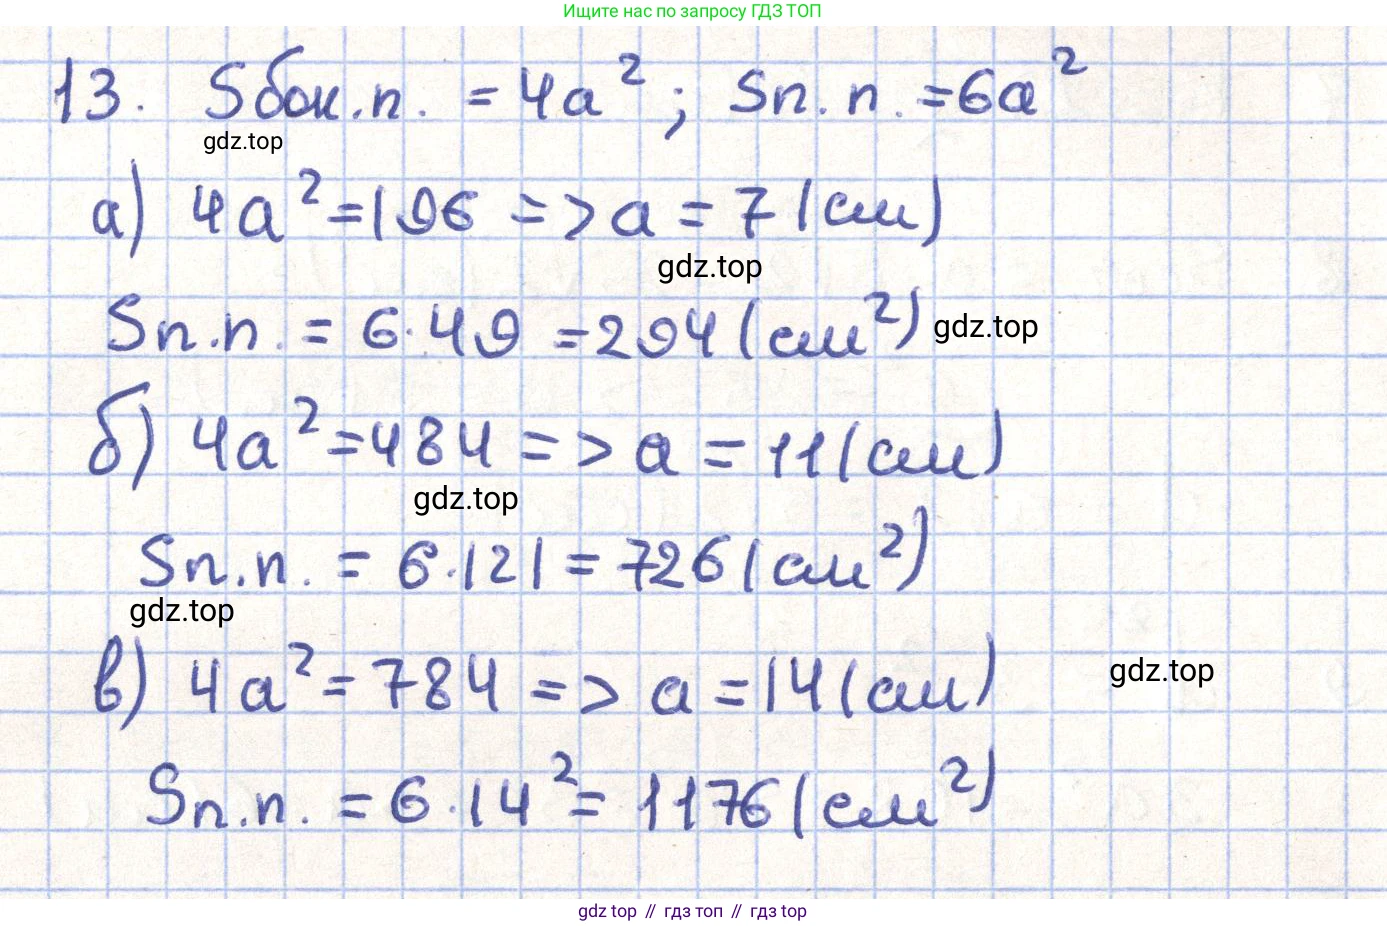 Ищите нас по запросу ГДЗ ТОП
13. Sбок.п. = 4a²; Sп.п. = 6a²
gdz.top
а) 4a² = 196 => a = 7 (см)
gdz.top
Sп.п. = 6·49 = 294 (см²) gdz.top
б) 4a² = 484 => a = 11 (см)
gdz.top
Sп.п. = 6·121 = 726 (см²)
gdz.top
в) 4a² = 784 => a = 14 (см)
gdz.top
Sп.п. = 6·14² = 1176 (см²)
gdz top // гдз топ // gdz top